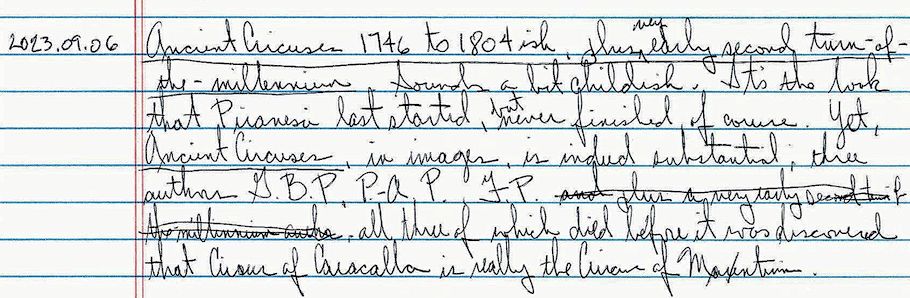 2023.09.06 Ancient Circuses 1746 to 1804ish, plus very early second turn-of-
the-millennium sounds a bit childish. It's the book
that Piranesi last started, but never finished, of course. Yet,
Ancient Circuses, in images, is indeed substantial; three
authors G.B.P., P-A.P., F.P. and plus a very early second turn of
the millennium author, all three of which died before it was discovered
that Circus of Caracalla is really the Circus of Maxentius.